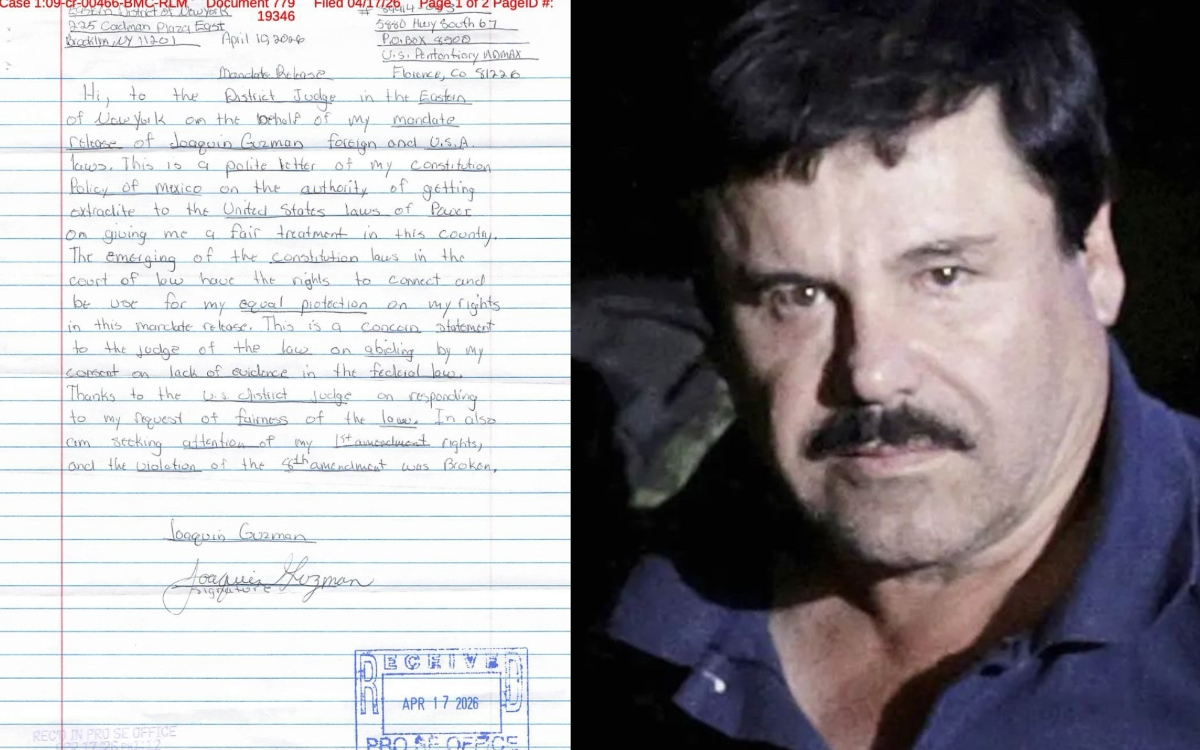 Case 1:09-cr-00466-BMC-RLM Document 779 Filed 04/17/26 Page 1 of 2 PageID #:
19346
Eastern District of New York
225 Cadman Plaza East
Brooklyn, NY 11201 April 10, 2026
#
5880 Hwy South 67
P.O. Box 8500
U.S. Pententiary ADMAX
Florence, Co 81226
Mandate Release
Hi, to the District Judge in the Eastern
of New York on the behalf of my mandate
release of Joaquin Guzman foreign and U.S.A.
laws. This is a polite letter of my constitution
Policy of Mexico on the authority of getting
extradite to the United States laws of Power
on giving me a fair treatment in this county.
The emerging of the constitution laws in the
court of law have the rights to connect and
be use for my equal protection on my rights
in this mandate release. This is a concern statement
to the judge of the law on abiding by my
consent on lack of evidence in the federal law.
Thanks to the U.S. district judge on responding
to my request of fairness of the law. In also
am seeking attention of my 1st amendment rights,
and the violation of the 8th amendment was Broken.
Joaquin Guzman
Joaquin Guzman
signature
RECEIVED
APR 17 2026
PRO SE OFFICE
REC'D IN PRO SE OFFICE